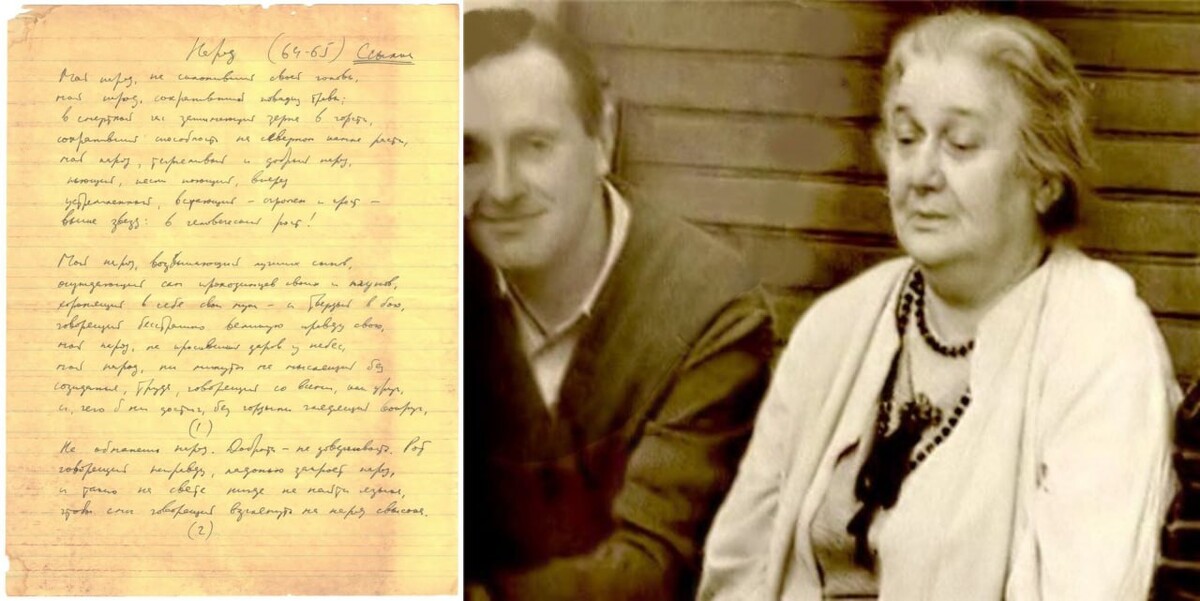 Народ (64-65) Ссылка
Мой народ, не склонивший своей головы,
мой народ, сохранивший повадку травы:
в смертный час зажимающий зерна в горсти,
сохранивший способность на северном камне расти,
мой народ, терпеливый и добрый народ,
пьющий, песни поющий, вперед
устремленный, встающий - огромен и прост -
выше звезд: в человеческий рост!
Мой народ, возвышающий лучших сынов,
осуждающий сам проходимцев своих и лгунов,
хоронящий в себе свои муки - и твердый в бою,
говорящий бесстрашно великую правду свою,
мой народ, не просивший даров у небес,
мой народ, ни минуты не мыслящий без
созиданья, труда, говорящий со всеми, как друг,
и, чего б ни достиг, без гордыни глядящий вокруг,
(1)
Не обманешь народ. Доброта - не доверчивость. Рот
говорящий неправду, ладонью закроет народ,
и такого на свете нигде не найти языка,
чтобы смог говорящий взглянуть на народ свысока.
(2)